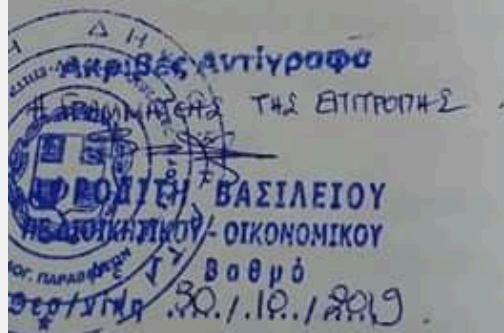 Ακριβές Αντίγραφο
Η ΓΡΑΜΜΑΤΕΑΣ ΤΗΣ ΕΠΙΤΡΟΠΗΣ
ΑΦΡΟΔΙΤΗ ΒΑΣΙΛΕΙΟΥ
ΠΕ ΔΙΟΙΚΗΤΙΚΟΥ - ΟΙΚΟΝΟΜΙΚΟΥ
Βαθμό
Θεσ/νίκη 30./.10../2019.